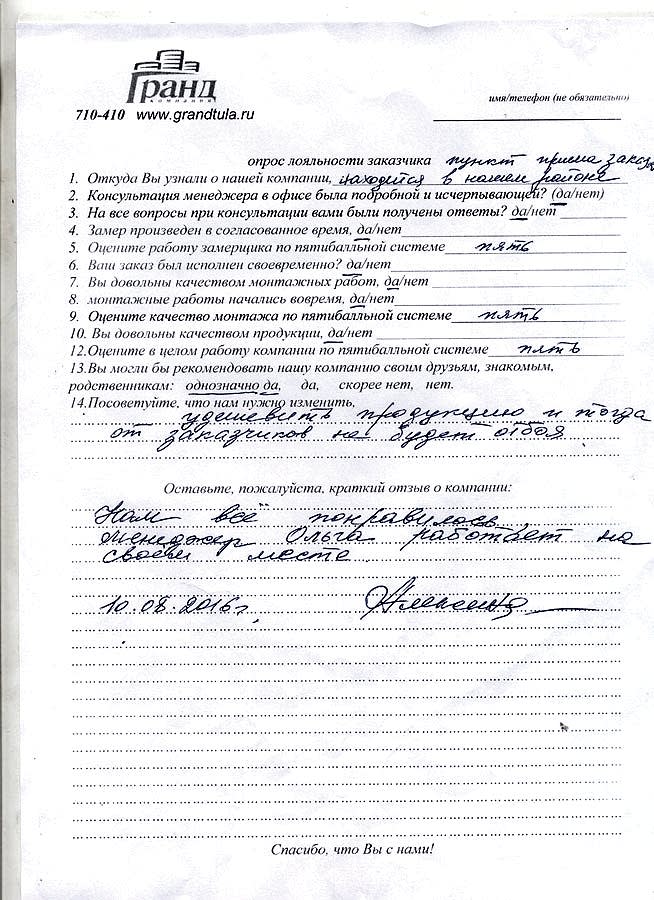 Гранд
КОМПАНИЯ
710-410 www.grandtula.ru
имя/телефон (не обязательно)
опрос лояльности заказчика пункт приема заказа
1. Откуда Вы узнали о нашей компании, находится в нашем районе
2. Консультация менеджера в офисе была подробной и исчерпывающей? (да/нет)
3. На все вопросы при консультации вами были получены ответы? да/нет
4. Замер произведен в согласованное время, да/нет
5. Оцените работу замерщика по пятибалльной системе пять
6. Ваш заказ был исполнен своевременно? да/нет
7. Вы довольны качеством монтажных работ, да/нет
8. монтажные работы начались вовремя, да/нет
9. Оцените качество монтажа по пятибалльной системе пять
10. Вы довольны качеством продукции, да/нет
12.Оцените в целом работу компании по пятибалльной системе пять
13.Вы могли бы рекомендовать нашу компанию своим друзьям, знакомым,
родственникам: однозначно да, да, скорее нет, нет.
14.Посоветуйте, что нам нужно изменить,
удешевить продукцию и тогда
от заказчиков не будет отбоя
Оставьте, пожалуйста, краткий отзыв о компании:
Нам всё понравилось,
менеджер Ольга работает на
своем месте
10.08.2016г.
Спасибо, что Вы с нами!